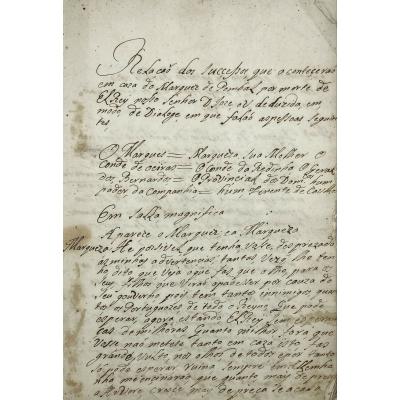 Relação dos successos que aconteçerão
em casa do Marquez de Pombal por morte de
ElRey nosso Senhor D. Joze o 1º deduzida em
modo de Dialogo em que falão as pessoas seguin
tes
O Marques = Marqueza sua Molher O
Conde de oeiras = O Conde da Redinha O Geral
dos Bernardos = O Provincial de Dom.
da Companhia = hum Tenente de Caval
Em salla magnifica
Aparece o Marquez e a Marqueza
Marqueza. He possivel que tenha Vosse desprezado
as minhas advertencias, tantas vezes lhe ten
ho dito que veja o que faz que olhe para os
seus filhos que virão a padeser por cauza do
seu governo pois tem tantos innimigos, quan
tos os Portuguezes de todo o Reyno. Que pode
esperar, agora estando ElRey sem
ças de milhoras. Quanto milhor fora que
Vosse não metese tanto em caza isto faz
grande vulto nos olhos de todos e por tanto
só pode esperar ruina sempre
não me emsinarão que quanto mais depressa
a crece mais depressa se acaba